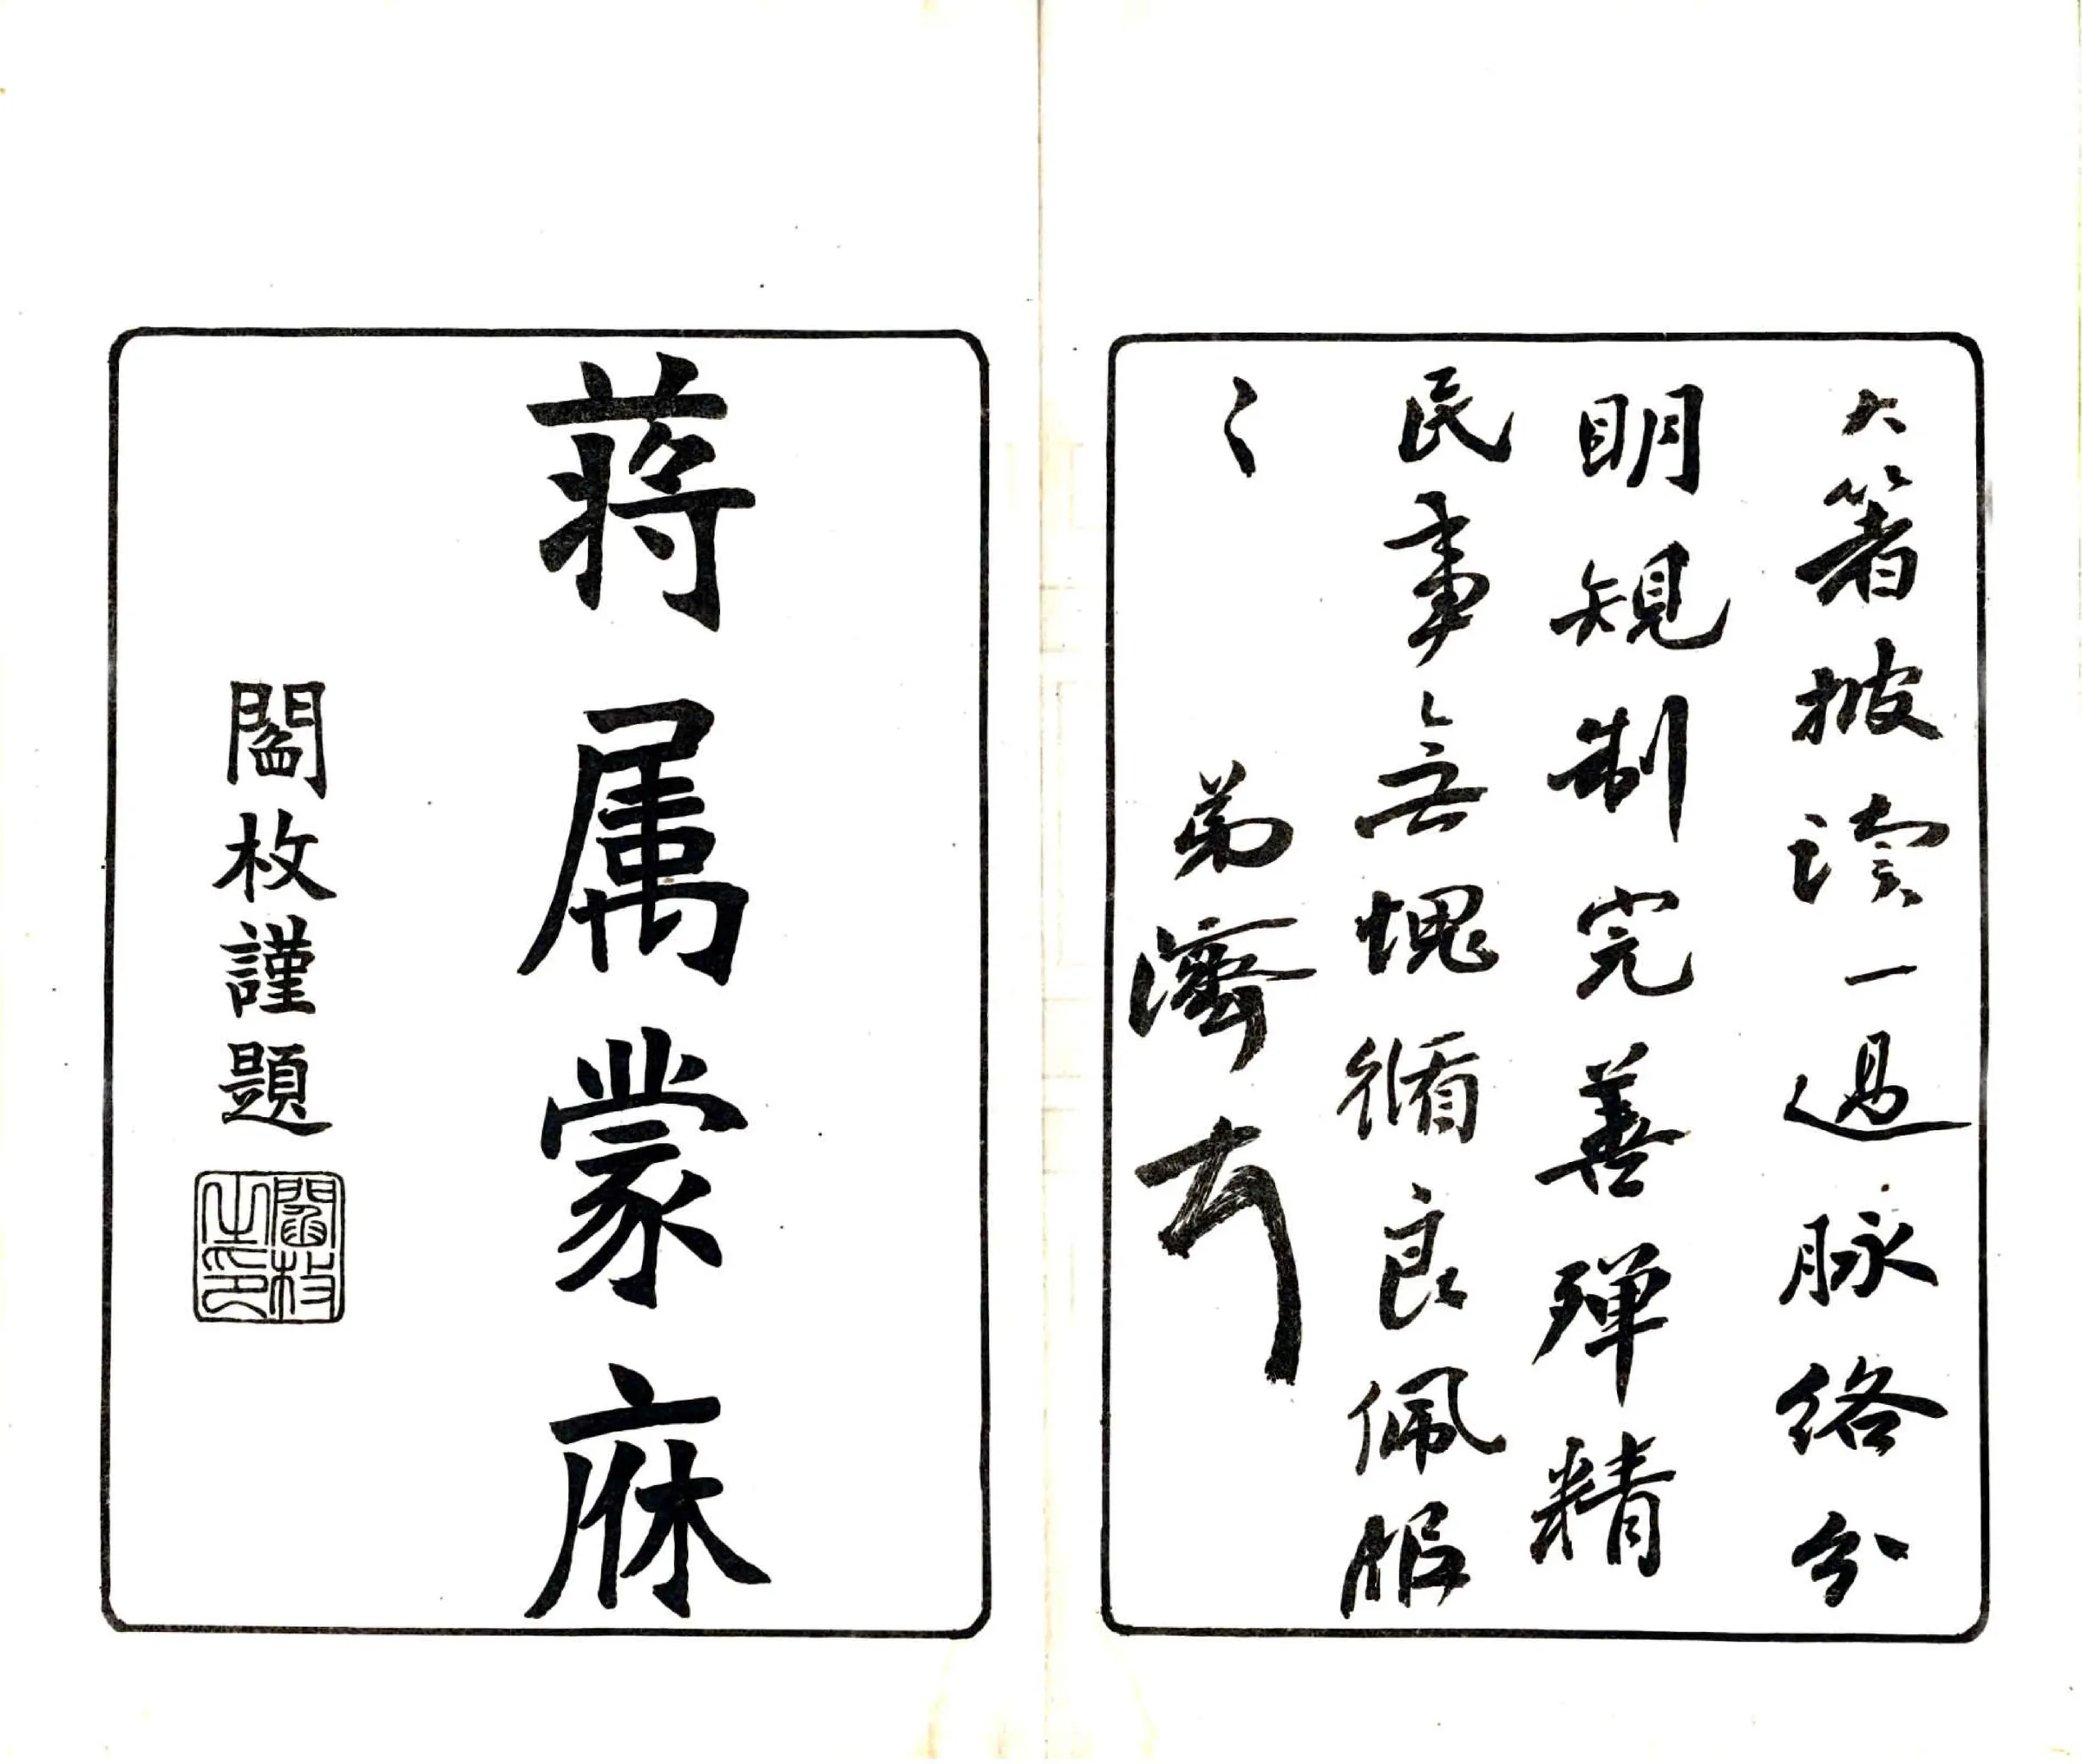 大箸披讀一過脉絡分
明規制完善殫精
民事無愧循良佩服
〻
弟濟
蔣属蒙庥
閻枚謹題
閻枚之印